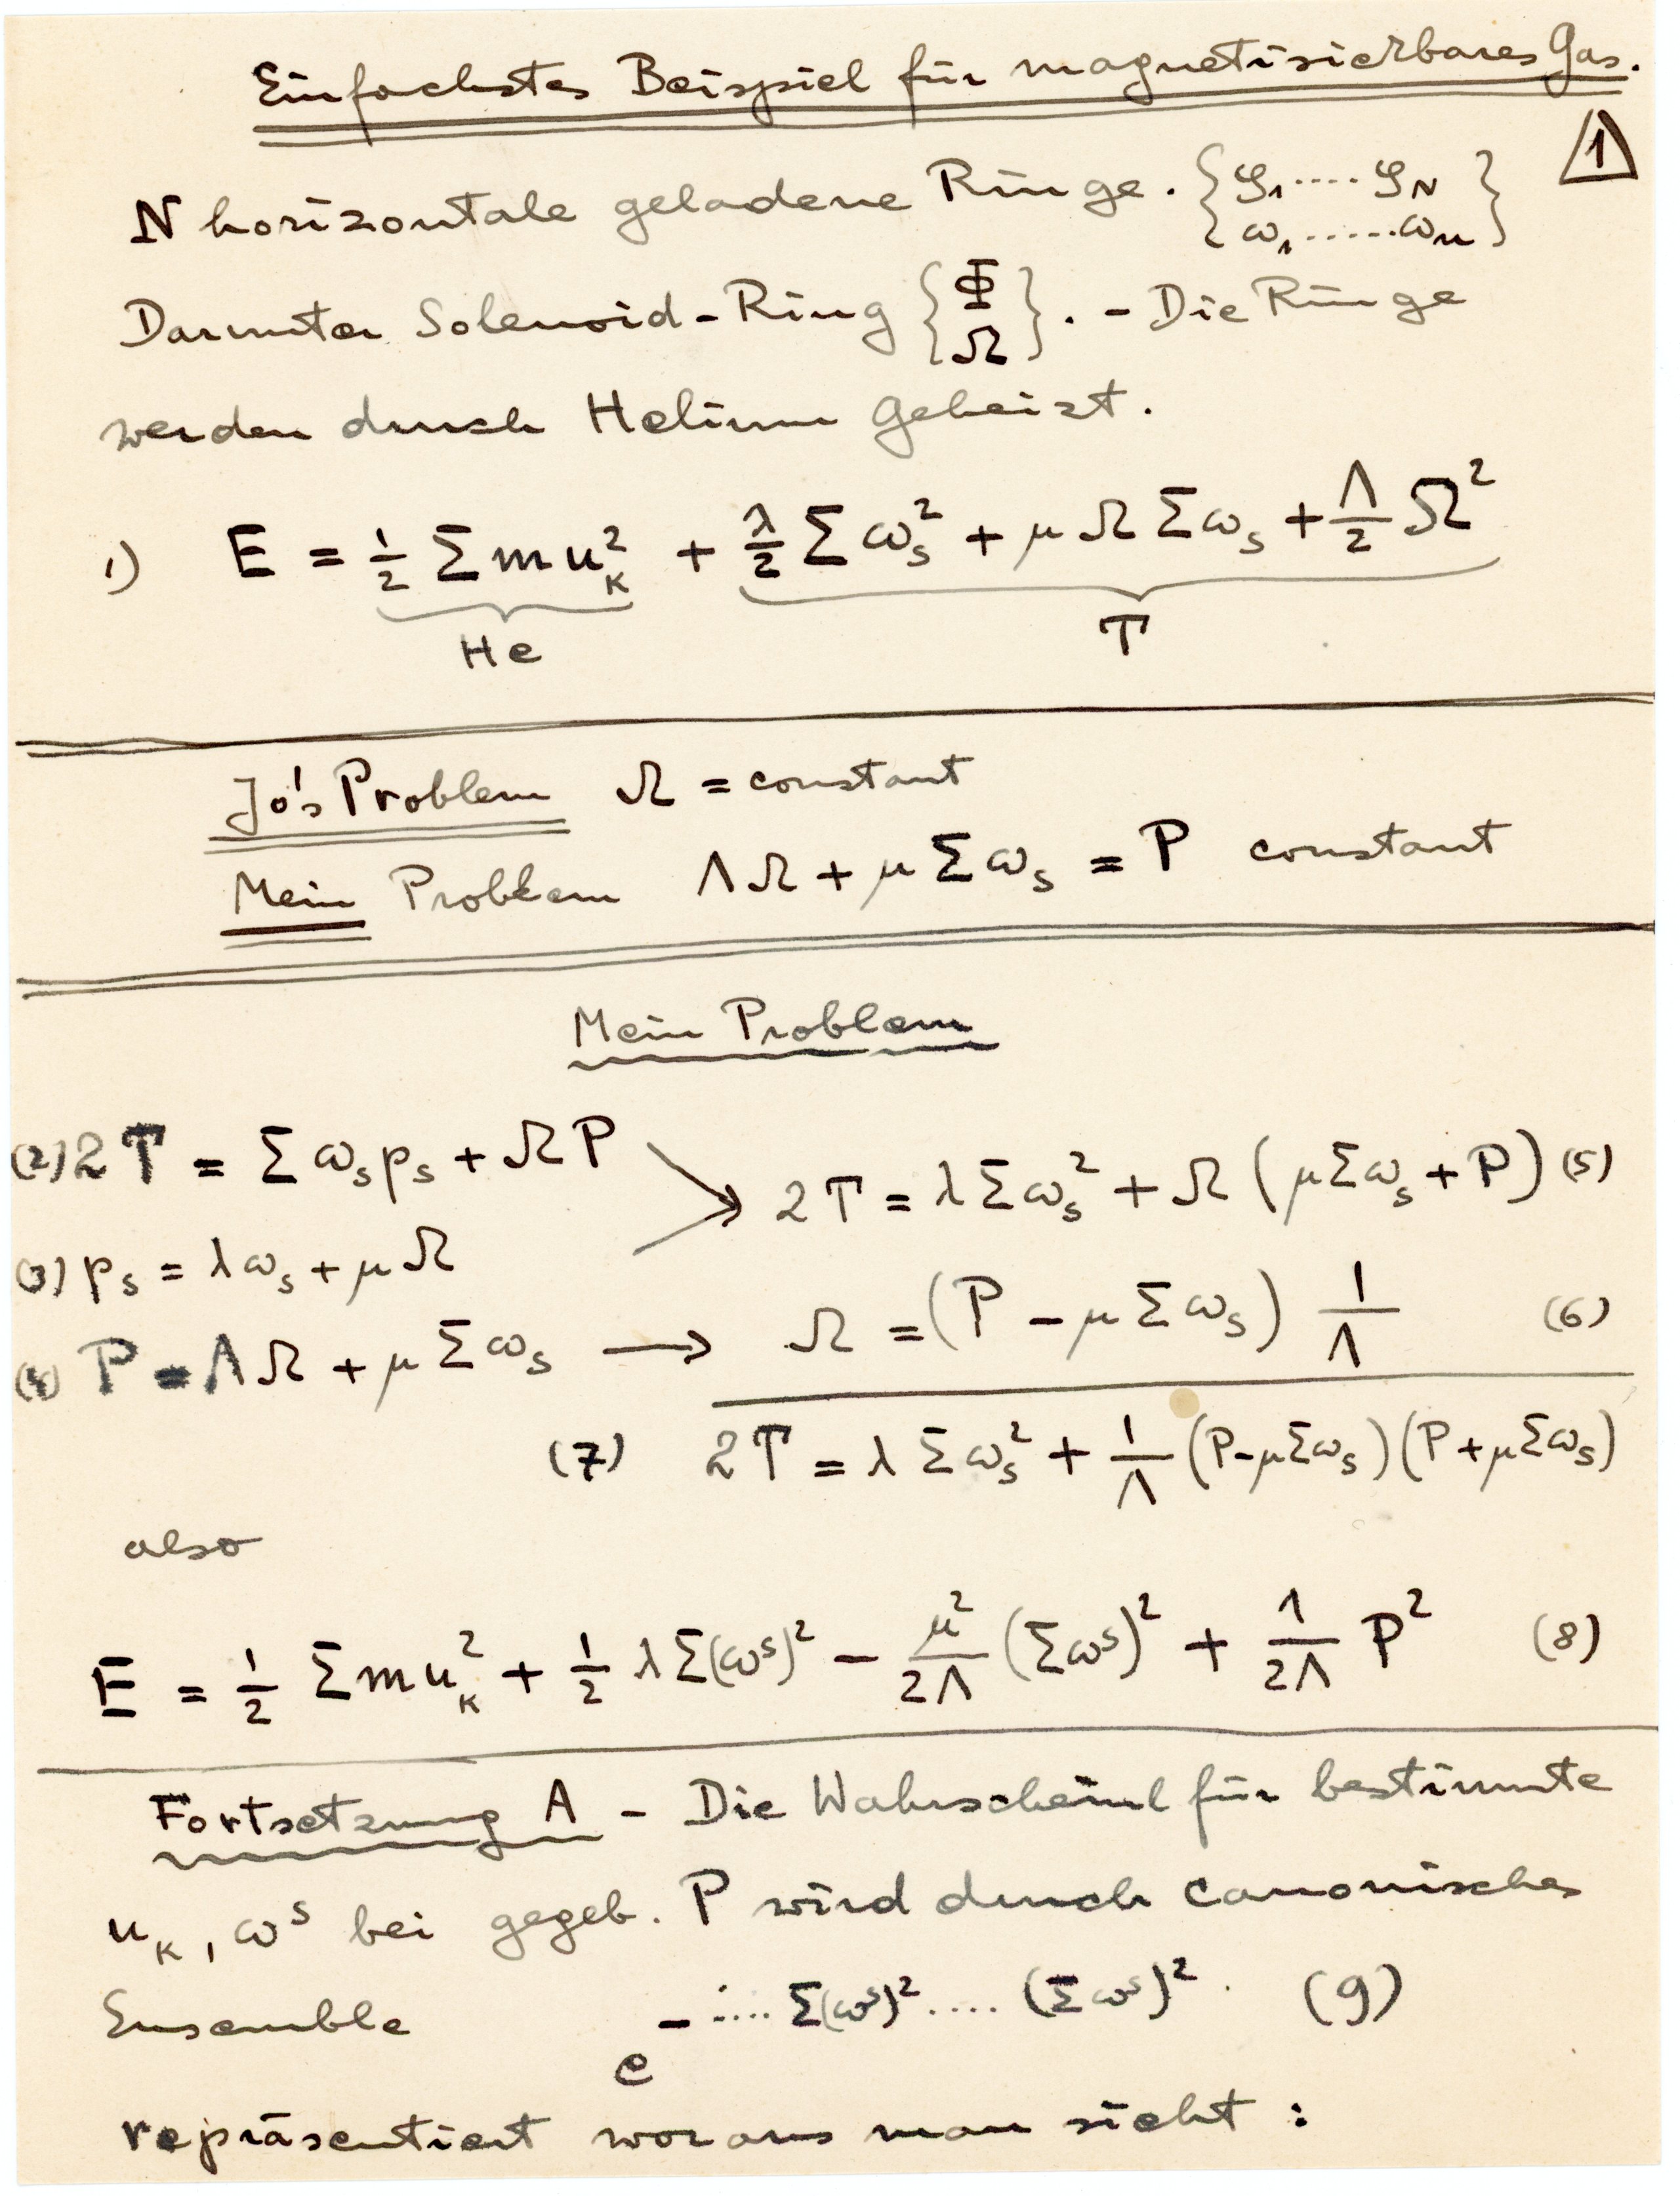 Einfachstes Beispiel für magnetisierbares Gas.
1
N horizontale geladene Ringe. { φ₁ ···· φ_N / ω₁ ······ ω_n }
Darunter Solenoid-Ring { Φ / Ω } . - Die Ringe
werden durch Helium geheizt.
1) E = ½ Σ m u_k² + λ/2 Σ ω_s² + μ Ω Σ ω_s + Λ/2 Ω²
He T
Jo's Problem Ω = constant
Mein Problem ΛΩ + μ Σ ω_s = P constant
Mein Problem
(2) 2T = Σ ω_s p_s + Ω P
2T = λ Σ ω_s² + Ω (μ Σ ω_s + P) (5)
(3) p_s = λ ω_s + μ Ω
(4) P = ΛΩ + μ Σ ω_s → Ω = (P - μ Σ ω_s) 1/Λ (6)
(7) 2T = λ Σ ω_s² + 1/Λ (P - μ Σ ω_s)(P + μ Σ ω_s)
also
E = ½ Σ m u_k² + ½ λ Σ(ω^s)² - μ²/2Λ (Σ ω^s)² + 1/2Λ P² (8)
Fortsetzung A - Die Wahrscheinl für bestimmte
u_k, ω^s bei gegeb. P wird durch canonisches
Ensemble e^{- ····· Σ(ω^s)² ···· (Σ ω^s)²} . (9)
repräsentiert woraus man sieht :